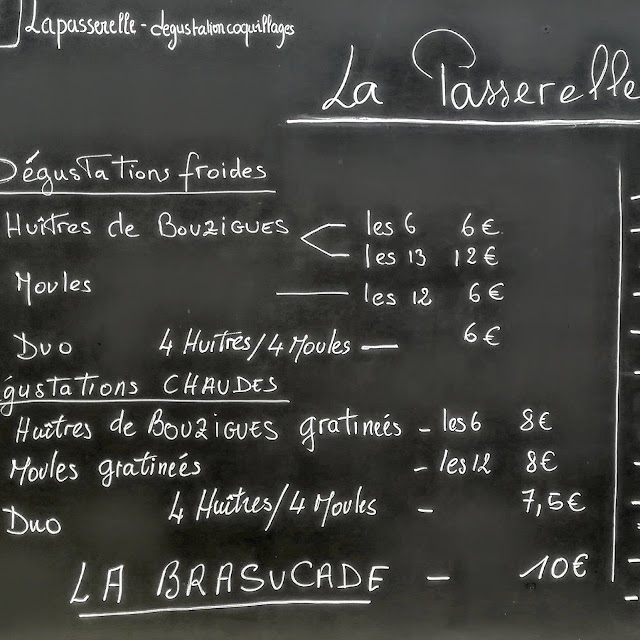 Lapasserelle - degustation coquillages
La Passerelle
Dégustations froides
Huîtres de Bouzigues les 6 6€
les 13 12€
Moules les 12 6€
Duo 4 Huîtres/4 Moules 6€
égustations CHAUDES
Huîtres de Bouzigues gratineés - les 6 8€
Moules gratineés - les 12 8€
Duo 4 Huîtres/4 Moules - 7,5€
LA BRASUCADE - 10€